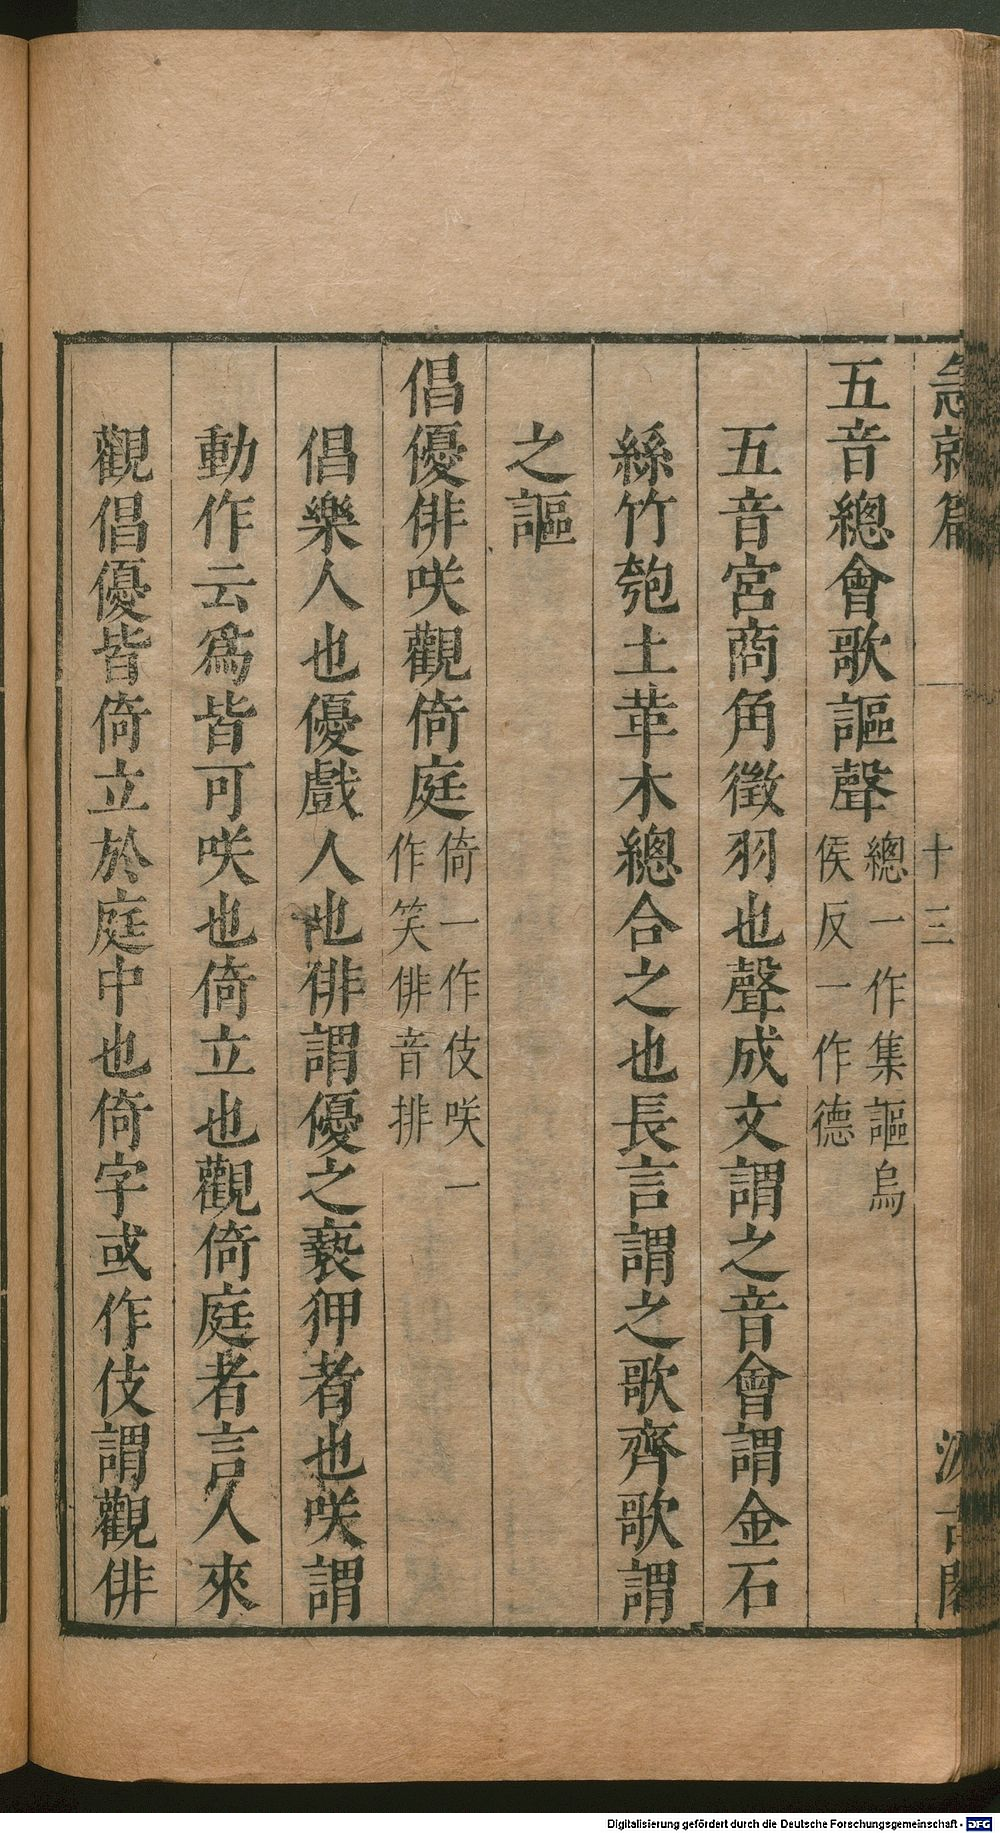 急就篇 十三 汲古閣
五音總會歌謳聲 總一作集謳烏
侯反一作德
五音宮商角徵羽也聲成文謂之音會謂金石
絲竹匏土革木總合之也長言謂之歌齊歌謂
之謳
倡優俳咲觀倚庭 倚一作伎咲一
作笑俳音排
倡樂人也優戲人也俳謂優之褻狎者也咲謂
動作云爲皆可咲也倚立也觀倚庭者言人來
觀倡優皆倚立於庭中也倚字或作伎謂觀俳
Digitalisierung gefördert durch die Deutsche Forschungsgemeinschaft - DFG